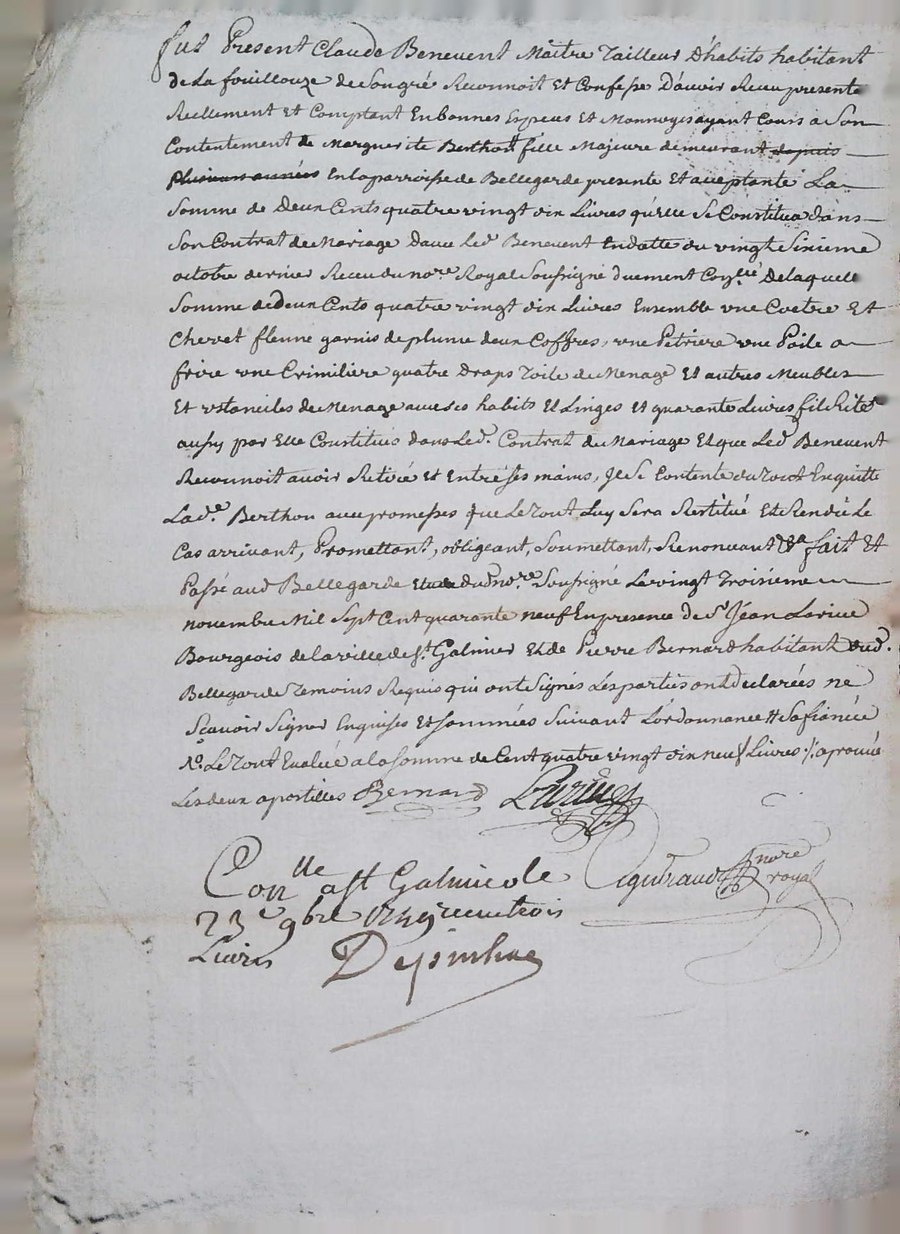 fut Present Claude Benevent Maitre Tailleur D'habits habitant
de La fouillouze de Son gré Reconnoit Et Confesse D'avoir Receu presente
Reellement Et Comptant En bonnes Especes Et Monnoyes ayant Cours a Son
Contentement de Marguerite Berthon fille Majeure demeurant depuis
plusieurs années En la parroisse de Bellegarde presente Et acceptante La
Somme de Deux Cents quatre vingt dix Livres qu'elle Se Constitua dans
Son Contrat de Mariage D'avec Led. Benevent En datte du vingt Sixieme
octobre dernier Receu du nore. Royal Soussigné duement Con.llé De laquelle
Somme de deux Cents quatre vingt dix Livres Ensemble une Coetre Et
Chevet fleune garnis de plume deux Coffres, une Petriere une Poile a
frire une Crimiliere quatre Draps Toile de Menage Et autres Meubles
Et ustanciles de Menage avec ses habits Et Linges Et quarante Livres
aussy par Elle Constitués dans Led. Contrat de Mariage Et que Led. Benevent
Reconnoit avoir Retiré et Entre Ses mains, Je Se Contente du Tout En quitte
Lade. Berthon avec promesses que Le Tout Luy Sera Restitué Et Rendu Le
Cas arrivant, Promettant, obligeant, Soumettant, Renonceant &a fait Et
Passé aud Bellegarde nore. Soussigné Le vingt Troisieme
novembre Mil Sept Cent quarante neuf En presence de Sr. Jean Larive
Bourgeois de la ville de St. Galmier Et de Pierre Bernard habitant dud.
Bellegarde Temoins Requis qui ont Signés Les parties ont declarées ne
Sçavoir Signer Enquises Et Sommées Suivant L'ordonnance # Sa fiancée
No. Le Tout Evalué a la Somme de Cent quatre vingt dix neuf Livres aprouvé
Les deux apostilles Bernard Larive
Con.lle a St Galmier le nore
23e 9bre 1749 royal
Livres